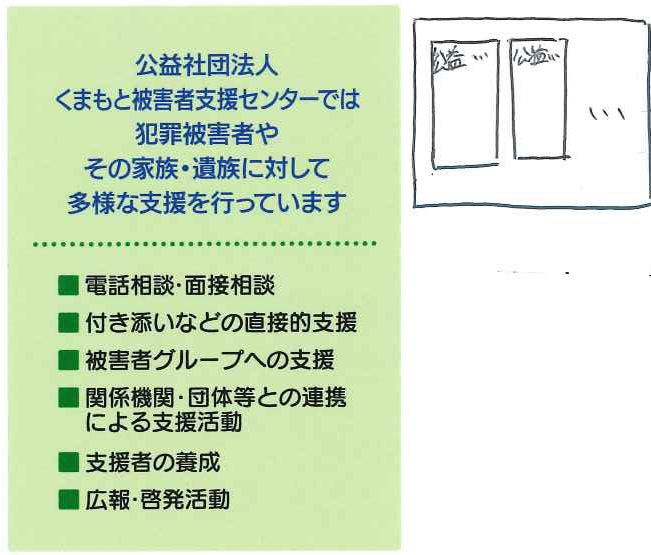 公益社団法人
くまもと被害者支援センターでは
犯罪被害者や
その家族・遺族に対して
多様な支援を行っています
■電話相談・面接相談
■付き添いなどの直接的支援
■被害者グループへの支援
■関係機関・団体等との連携
による支援活動
■支援者の養成
■広報・啓発活動
公益… 公益…
…